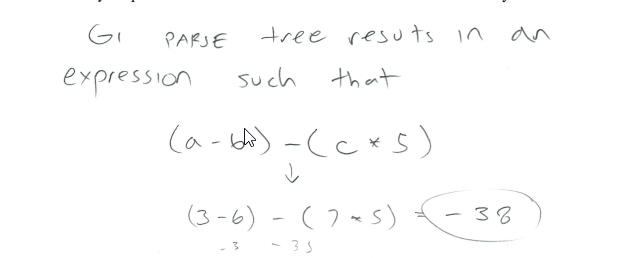 G1 PARSE tree resuts in an
expression such that
(a - b) - (c * 5)
↓
(3-6) - (7 * 5) = -38
-3 - 35